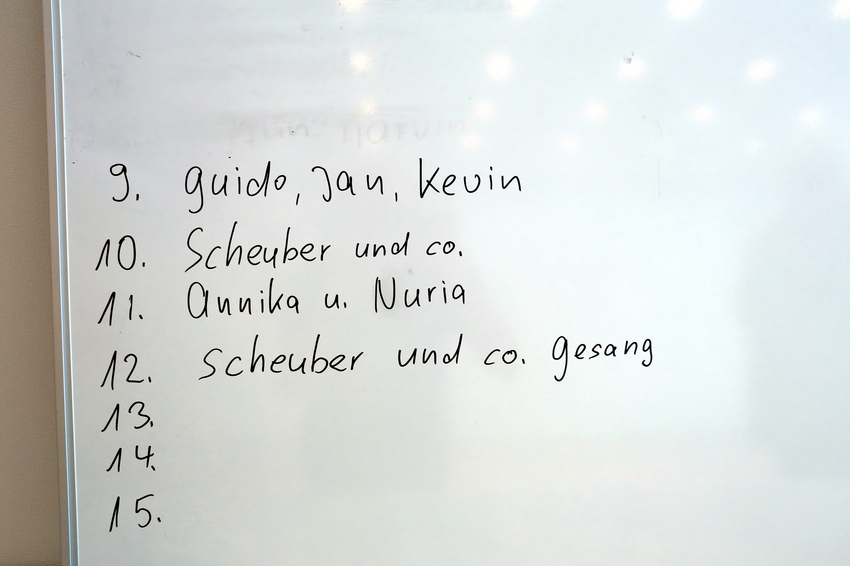 9. guido, Jan, Kevin
10. Scheuber und co.
11. Annika u. Nuria
12. Scheuber und co. gesang
13.
14.
15.